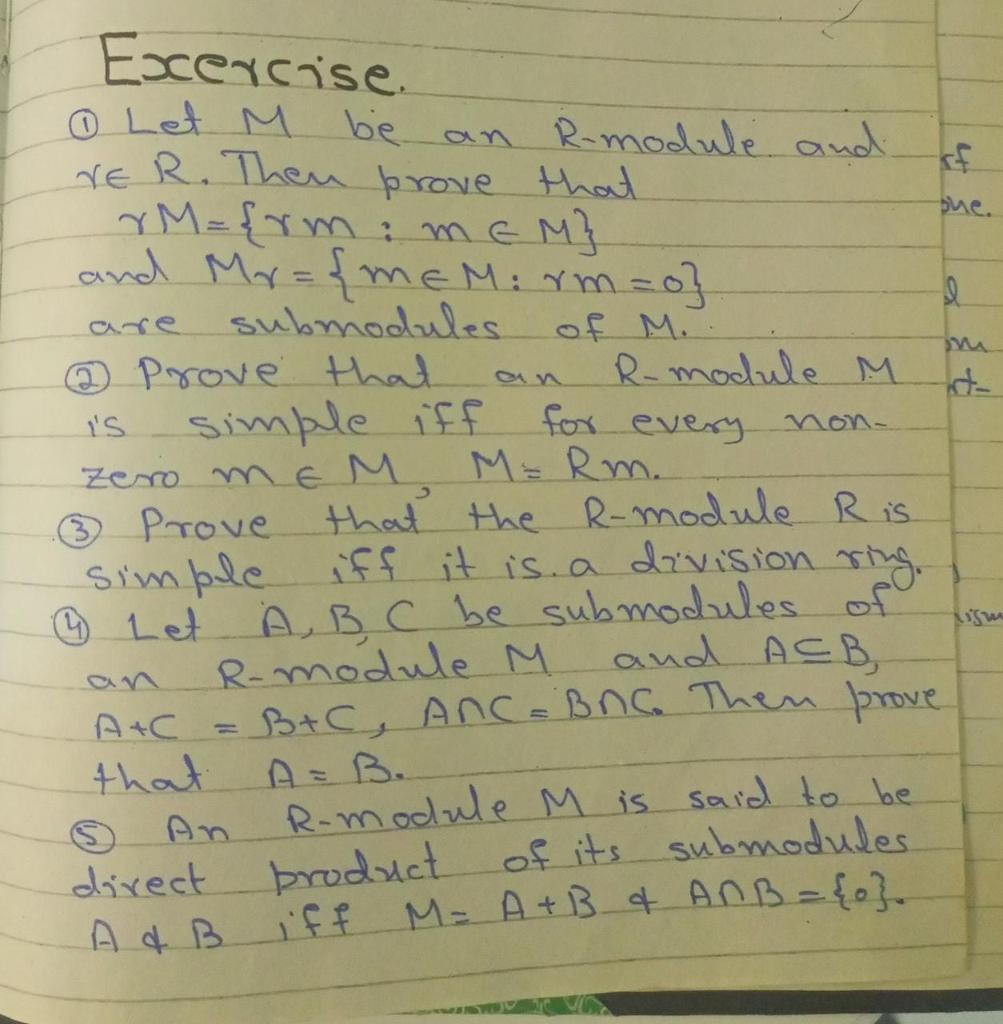 Excercise.
① Let M be an R-module and
r∈ R. Then prove that
rM={rm : m ∈ M}
and Mr = {m∈M: rm=0}
are submodules of M.
② Prove that an R-module M
is simple iff for every non-
zero m ∈ M, M= Rm.
③ Prove that the R-module R is
simple iff it is a division ring.
④ Let A, B, C be submodules of
an R-module M and A⊆B,
A+C = B+C, A∩C = B∩C. Then prove
that A = B.
⑤ An R-module M is said to be
direct product of its submodules
A & B iff M= A+B & A∩B = {0}.